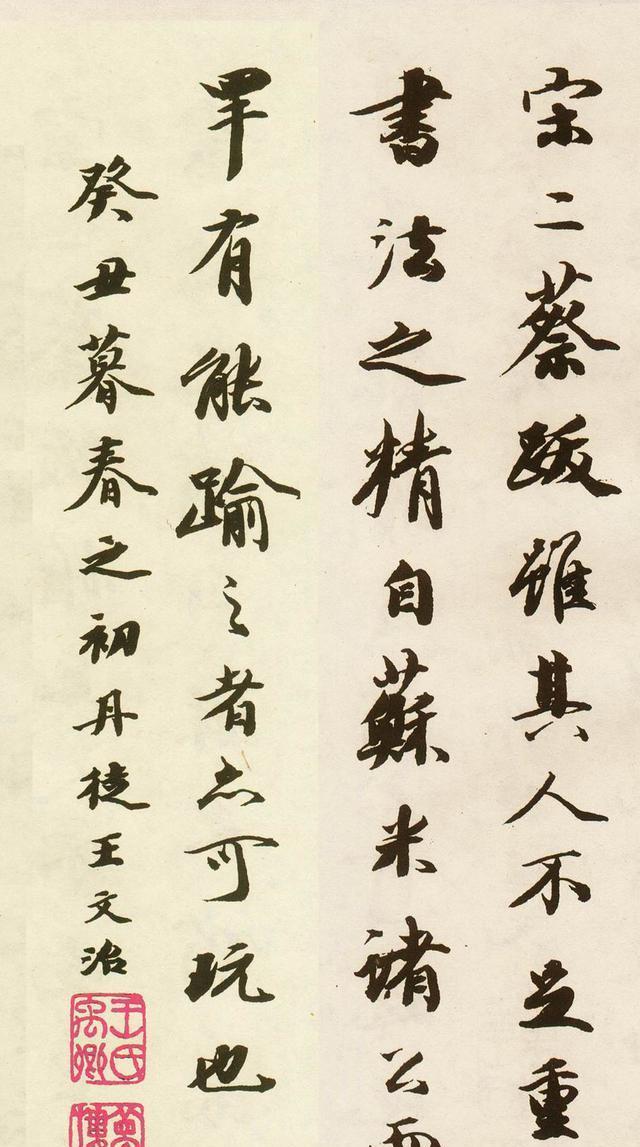 宋二蔡跋雖其人不足重
書法之精自蘇米諸公而
罕有能踰之者亦可玩也
癸丑暮春之初丹徒王文治
王氏禹卿